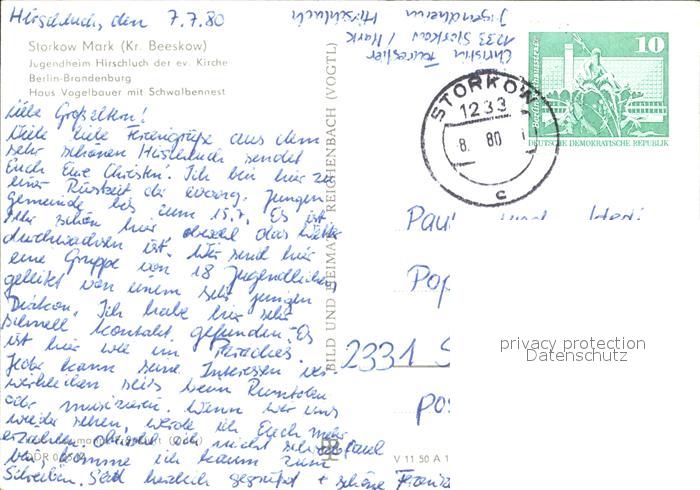 Hirschluch, den 7.7.80
Storkow Mark (Kr. Beeskow)
Jugendheim Hirschluch der ev. Kirche
Berlin-Brandenburg
Haus Vogelbauer mit Schwalbennest
Liebe Großeltern!
Viele liebe Feriengrüße aus dem
sehr schönen Hirschluch sendet
Euch Eure Christin. Ich bin hier zu
einer Rüstzeit der evang. Jungen
gemeinde bis zum 15.7. Es ist
sehr schön hier, obwohl das Wetter
durchwachsen ist. Wir sind hier
eine Gruppe von 18 Jugendlichen,
geleitet von einem sehr jungen
Diakon. Ich habe hier sehr
schnell Kontakt gefunden. Es
ist hier wie im Paradies.
Jeder kann seine Interessen ver-
wirklichen seis beim Rumtoben
oder musizieren. Wenn wir uns
wieder sehen, werde ich Euch mehr
erzählen, obwohl ich nicht schreibfaul
bin, komme ich kaum zum
Schreiben. Seid herzlich gegrüßt + schöne
BILD UND HEIMAT REICHENBACH (VOGTL)
V 11 50 A 1
Christin
1233 Storkow / Mark
Jugendheim Hirschluch
STORKOW
1233
8. 80
c
10
DEUTSCHE DEMOKRATISCHE REPUBLIK
Paul und
Pop
2331 S
PO
privacy protection
Datenschutz